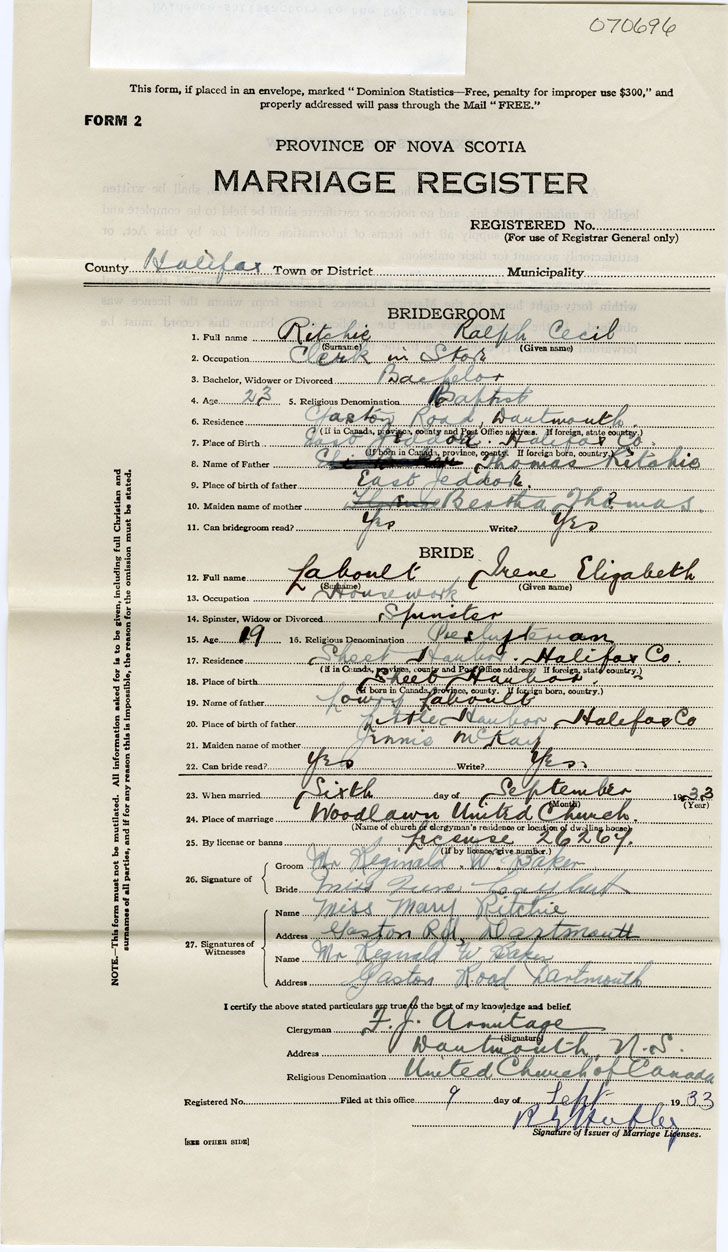 070696
This form, if placed in an envelope, marked "Dominion Statistics—Free, penalty for improper use $300," and
properly addressed will pass through the Mail "FREE."
FORM 2
PROVINCE OF NOVA SCOTIA
MARRIAGE REGISTER
REGISTERED No.
(For use of Registrar General only)
County Halifax Town or District Municipality
BRIDEGROOM
1. Full name Ritchie Ralph Cecil
(Surname) (Given name)
2. Occupation Clerk in Store
3. Bachelor, Widower or Divorced Bachelor
4. Age 23 5. Religious Denomination Baptist
6. Residence Gaston Road, Dartmouth.
(If in Canada, province, county and Post Office address. If foreign, state country.)
7. Place of Birth East Jeddore. Halifax Co.
(If born in Canada, province, county. If foreign born, country.)
8. Name of Father Thomas Ritchie
9. Place of birth of father East Jeddore.
10. Maiden name of mother Bertha Thomas.
11. Can bridegroom read? Yes Write? Yes
BRIDE
12. Full name Laboult Irene Elizabeth
(Surname) (Given name)
13. Occupation Housework
14. Spinster, Widow or Divorced Spinster
15. Age 19 16. Religious Denomination Presbyterian
17. Residence Sheet Harbor Halifax Co.
(If in Canada, province, county and Post Office address. If foreign, state country.)
18. Place of birth Sheet Harbor
(If born in Canada, province, county. If foreign born, country.)
19. Name of father Lowry Laboult
20. Place of birth of father Harbor, Halifax Co
21. Maiden name of mother Jennie McKay
22. Can bride read? Yes Write? Yes.
23. When married Sixth day of September 1933
(Month) (Year)
24. Place of marriage Woodlawn United Church.
(Name of church or clergyman's residence or location of dwelling house)
25. By license or banns License 26267.
(If by licence, give number.)
26. Signature of
Groom Mr Reginald W. Baker
Bride Miss
27. Signatures of Witnesses
Name Miss Mary Ritchie
Address Gaston Rd, Dartmouth
Name Mr Reginald W Baker
Address Gaston Road Dartmouth
I certify the above stated particulars are true to the best of my knowledge and belief.
Clergyman F. J. Armitage
(Signature)
Address Dartmouth, N.S.
Religious Denomination United Church of Canada
Registered No. Filed at this office 9 day of Sept 1933
Signature of Issuer of Marriage Licenses.
[SEE OTHER SIDE]
NOTE.—This form must not be mutilated. All information asked for is to be given, including full Christian and
surnames of all parties, and if for any reason this is impossible, the reason for the omission must be stated.